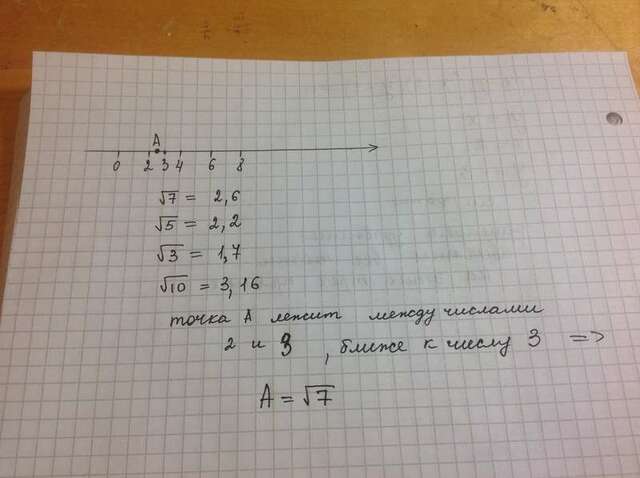 A
0 2 3 4 6 8
√7 = 2,6
√5 = 2,2
√3 = 1,7
√10 = 3,16
точка A лежит между числами
2 и 3, ближе к числу 3 =>
A = √7